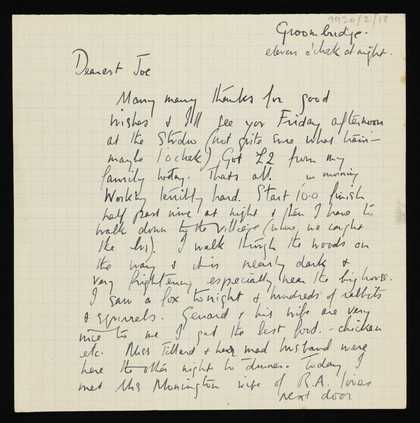 1930/2/18
Groombridge.
eleven o'clock at night.
Dearest Joe
Many many thanks for good
wishes & I'll see you Friday afternoon
at the Studio (not quite sure what train -
maybe 1 o'clock) Got £2 from my
family today. That's all. in morning
Working terribly hard. Start 10.0 finish
half past nine at night & then I have to
walk down to the village (where we caught
the bus). I walk through the woods on
the way & it is nearly dark &
very frightening especially near the big house.
I saw a fox tonight & hundreds of rabbits
& squirrels. Gerrard & his wife are very
nice to me I get the best food - chicken
etc. Miss Tillard & her mad husband were
here the other night to dinner. Today I
met Mrs Monington wife of R.A. lives
next door